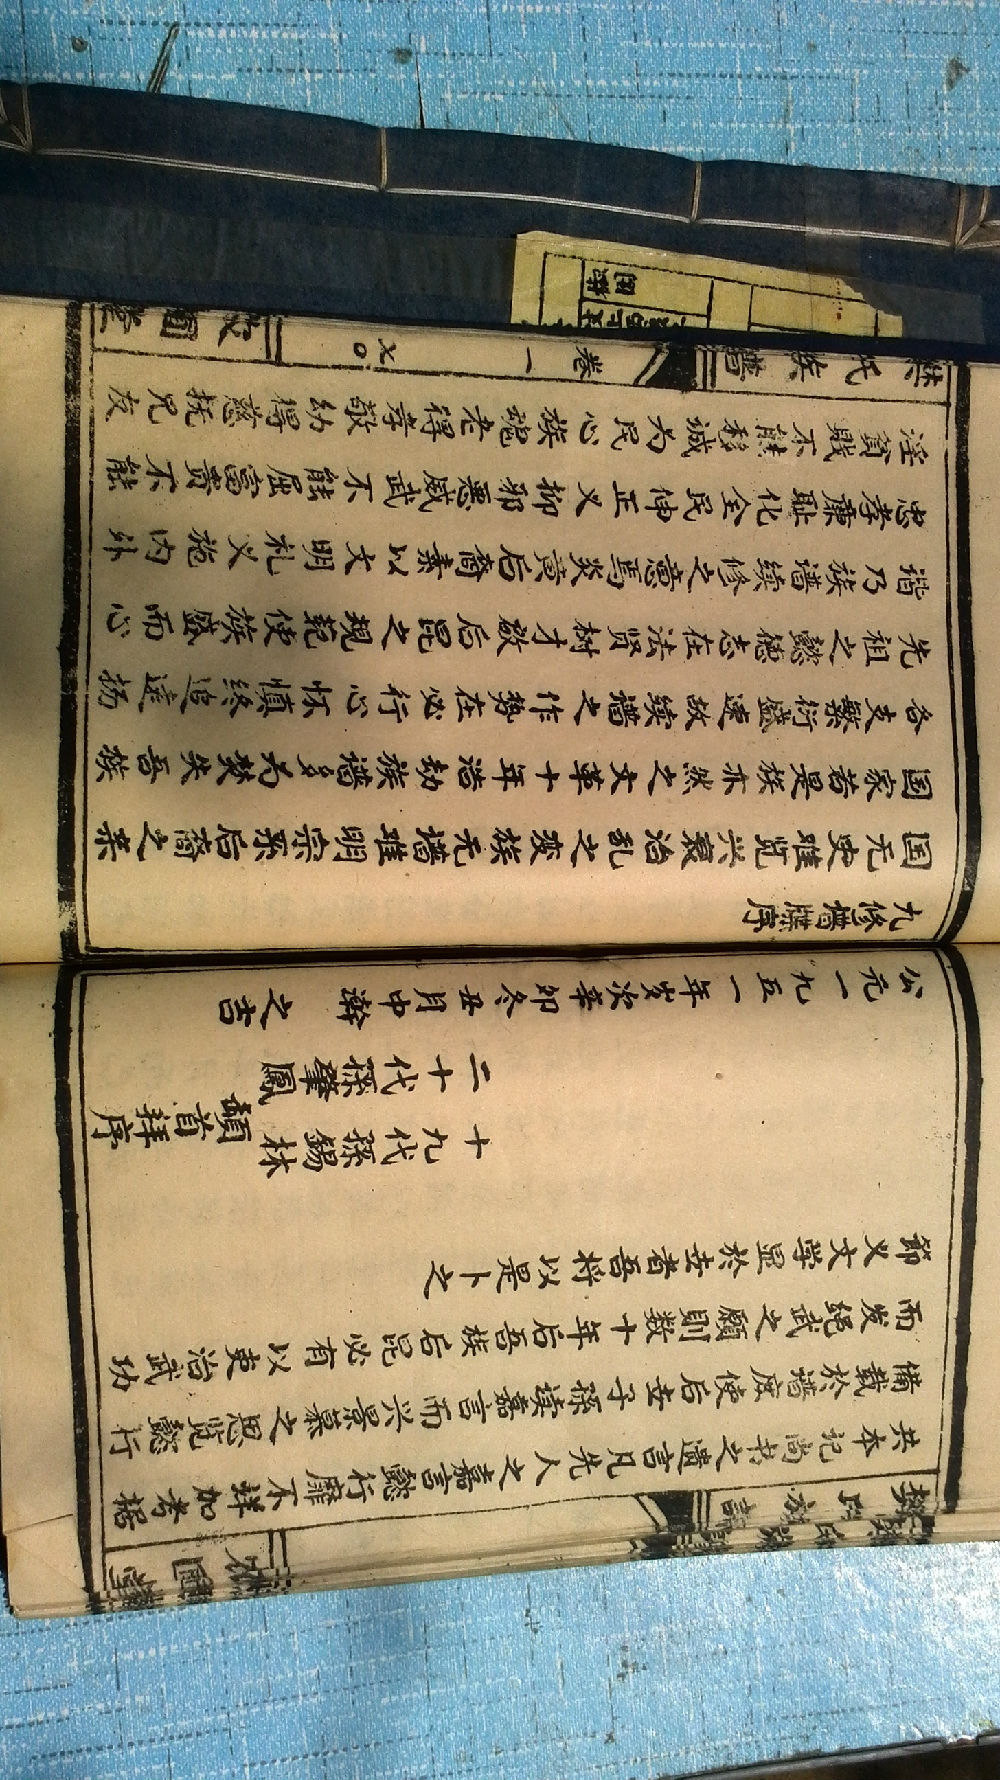 共本記尚书之遺言凡先人之嘉言懿行靡不详加考据
備載於譜庶使后世子孫读嘉言而兴景慕之思览懿行
而发绳武之願則数十年后吾族后昆必有以吏治武功
節义文学显於世者吾将以是卜之
十九代孫錫林
二十代孫肇鳳
頓首拜序
公元一九五一年岁次辛卯冬丑月中澣之吉
九修譜牒序
国无史难览兴衰治乱之变族无譜难明宗系后裔之亲
国家若是族亦然之文革十年浩劫族譜多为焚失吾族
各支繁衍盛速故续譜之作势在必行心怀慎终追远扬
先祖之懿德志在法贤树才啟后昆之規範使族盛而心
谐乃族谱续修之意焉炎黄后裔素以文明礼义施内外
忠孝廉耻化全民伸正义抑邪恶威武不能屈富贵不能
淫貧贱不能移诚为民心族魂老得孝敬幼得慈抚兄友
樊氏族譜
卷一
〤〇
國堂